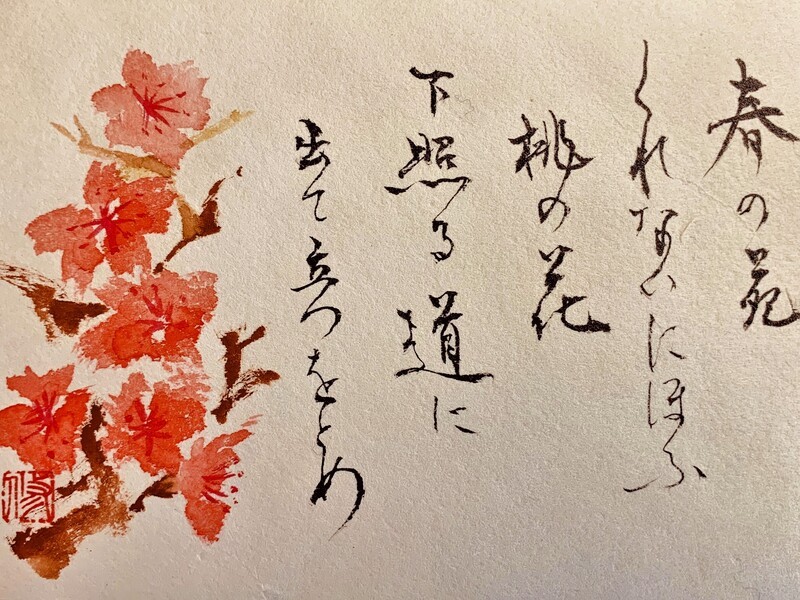 春の苑
くれないにほふ
桃の花
下照る道に
出て立つをとめ